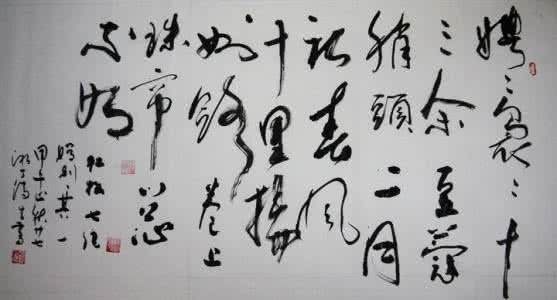 娉〻裊〻十
三余豆蔻
梢頭二月
初春風
十里揚
州路卷上
珠帘总
不如
杜牧七绝
赠别其一
甲午